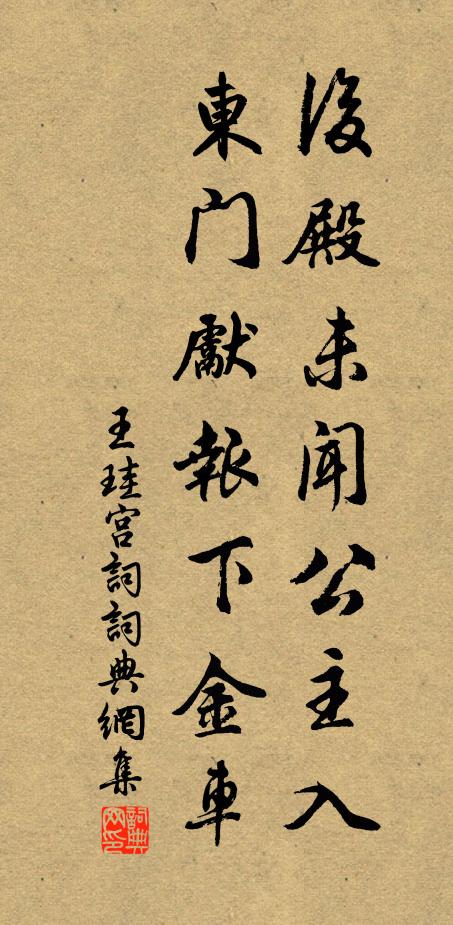 後殿未聞公主入
東門獻報下金車
王珪宮詞詞典網集
詞典网印